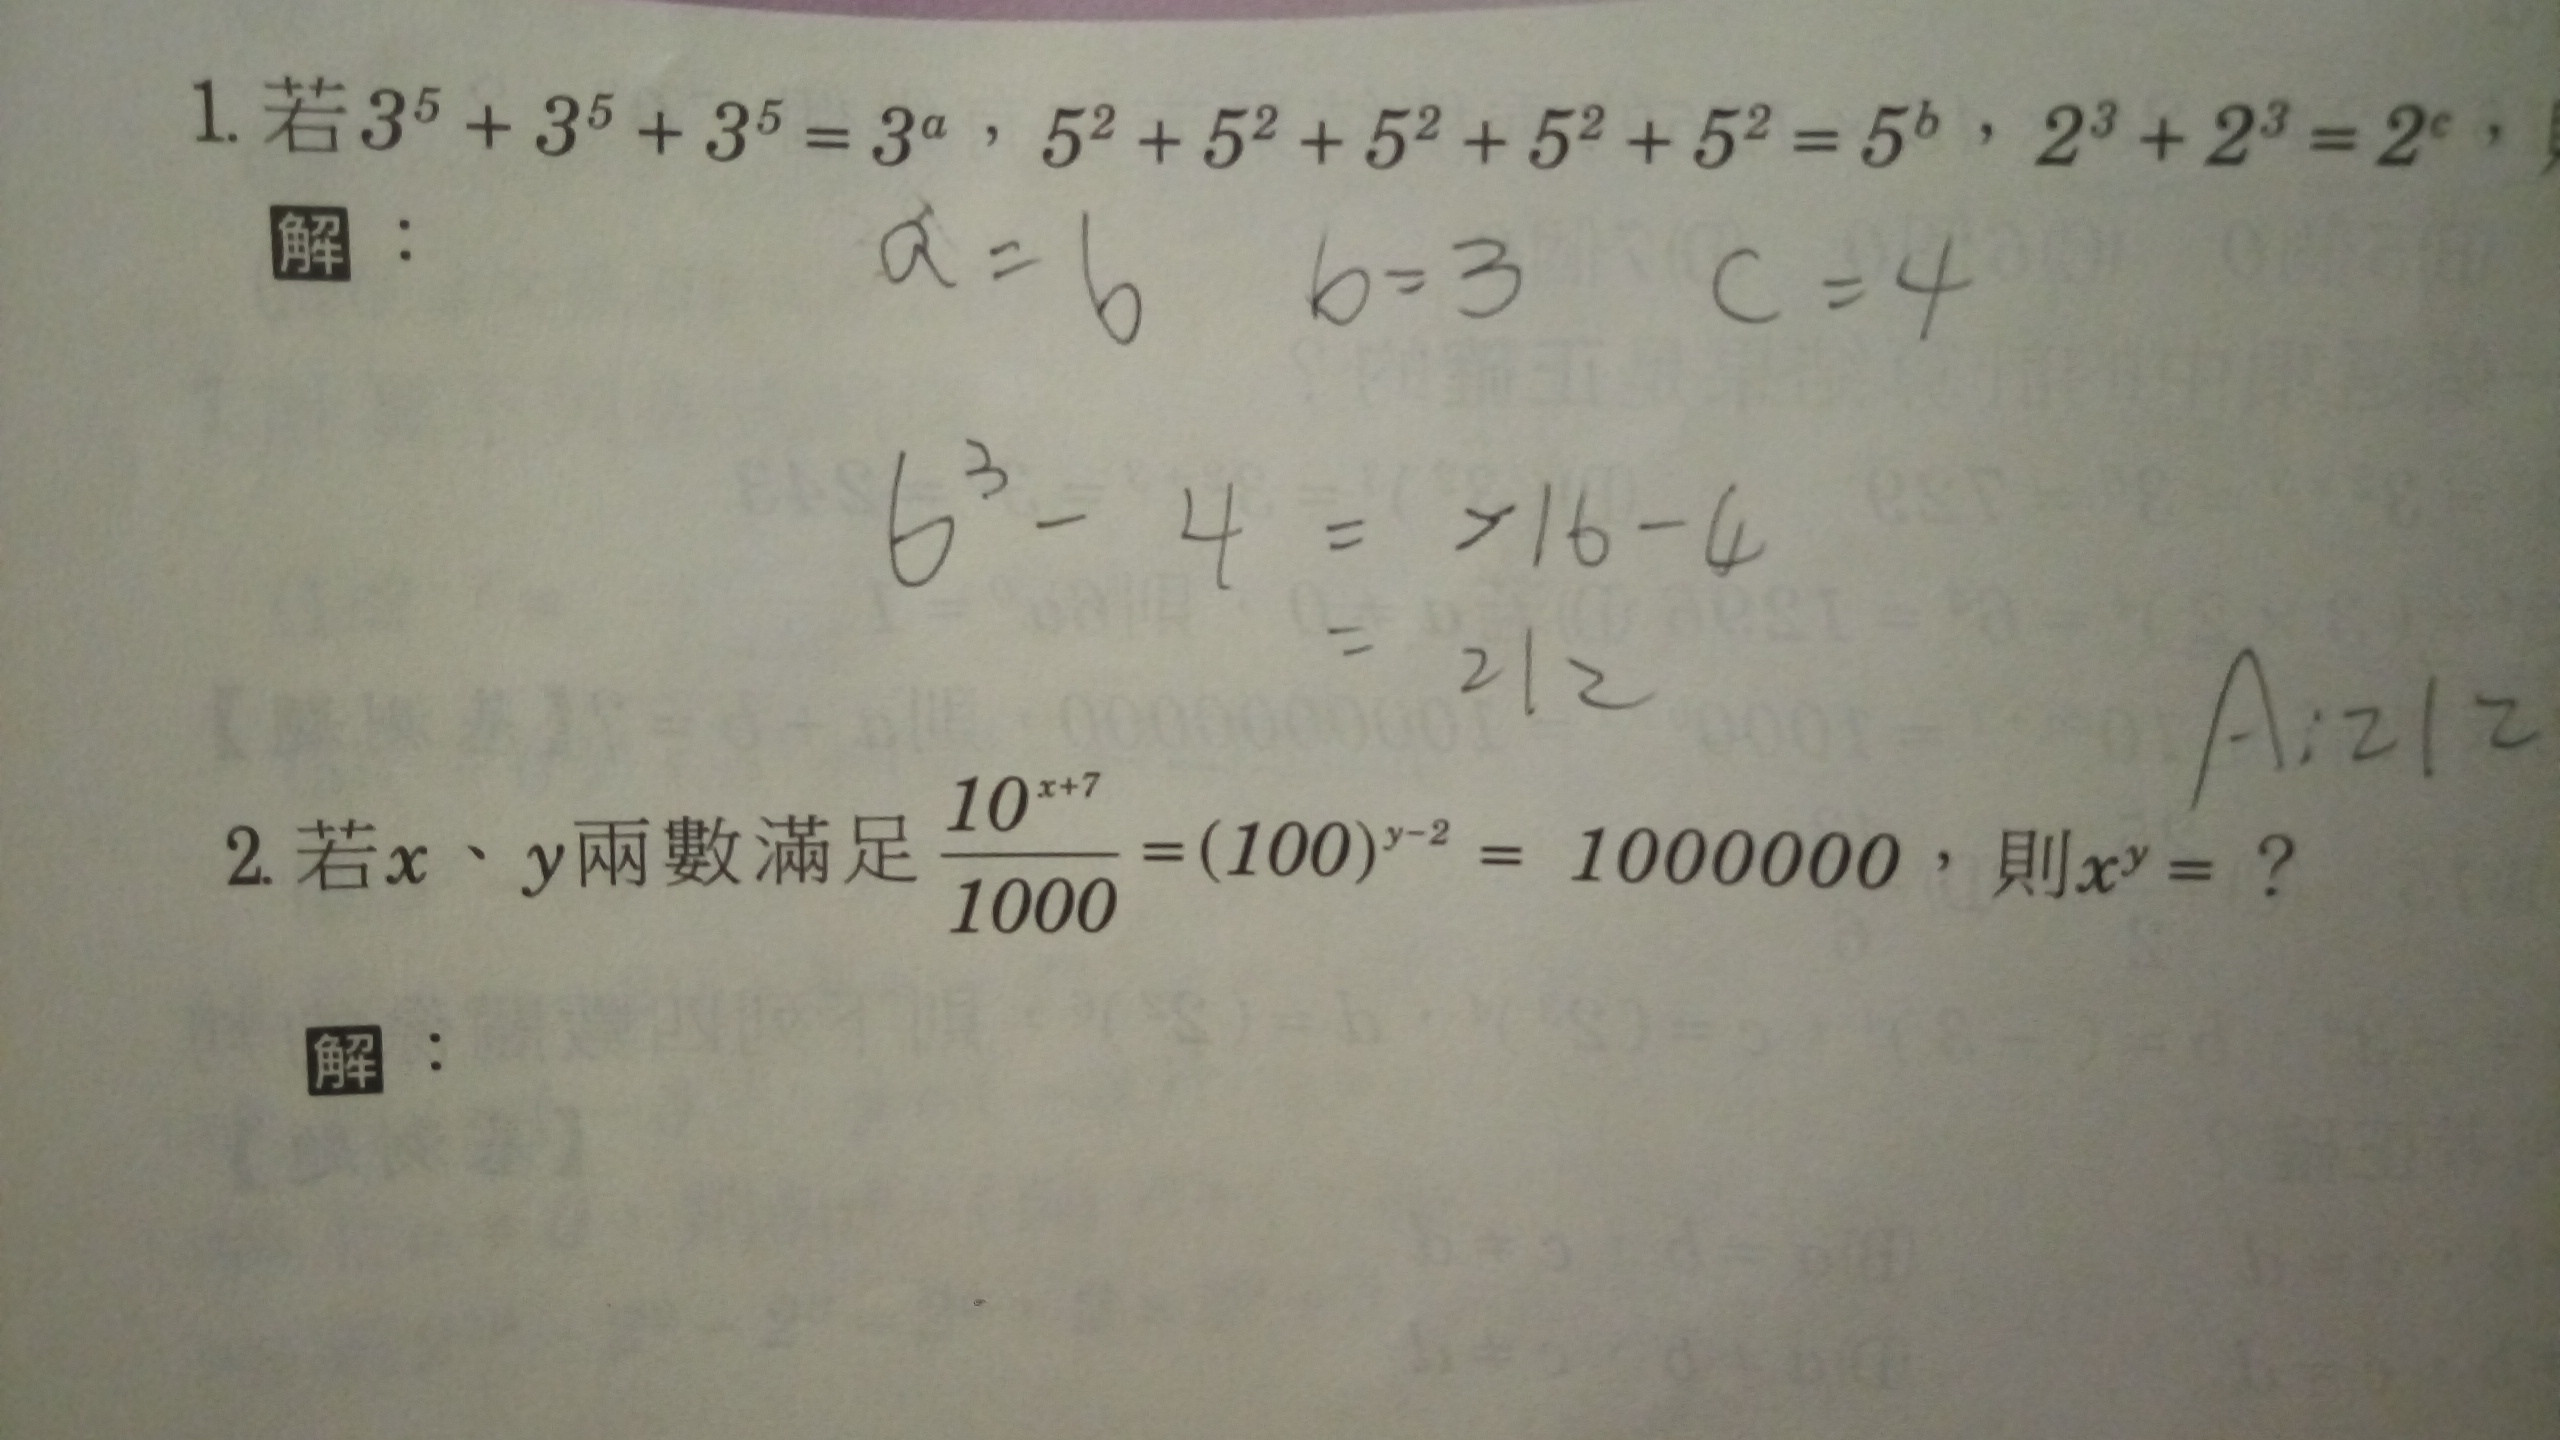 1. 若 3⁵ + 3⁵ + 3⁵ = 3ᵃ，5² + 5² + 5² + 5² + 5² = 5ᵇ，2³ + 2³ = 2ᶜ，
解：
a = 6 b = 3 c = 4
6³ - 4 = 216 - 4
= 212
A: 212
2. 若x、y兩數滿足 10ˣ⁺⁷/1000 = (100)ʸ⁻² = 1000000，則xʸ = ？
解：